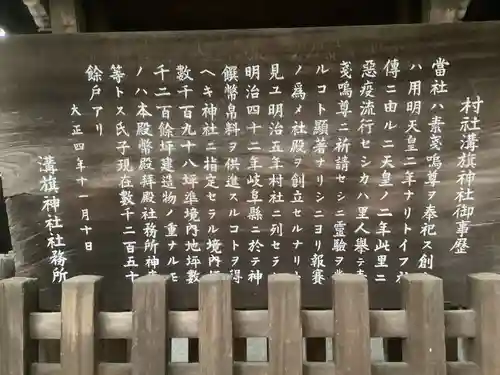 村社溝旗神社御事歴
當社ハ素戔嗚尊ヲ奉祀ス創
ハ用明天皇二年ナリトイフ
傳ニ由ルニ天皇ノ二年此里ニ
惡疫流行セシカハ里人擧テ
戔嗚尊ニ祈請セシニ靈驗ヲ
ルコト顯著ナリシニヨリ報賽
ノ爲メ社殿ヲ創立セルナリト
見ユ明治五年村社ニ列セラ
明治四十二年岐阜縣ニ於テ神
饌幣帛料ヲ供進スルコトヲ得
ヘキ神社ニ指定セラル境内
數千百九十八坪準境内地坪數
千二百餘坪建造物ノ重ナルモ
ノハ本殿幣殿拜殿社務所神
等トス氏子現在數千二百五十
餘戸アリ
大正四年十一月十日
溝旗神社社務所